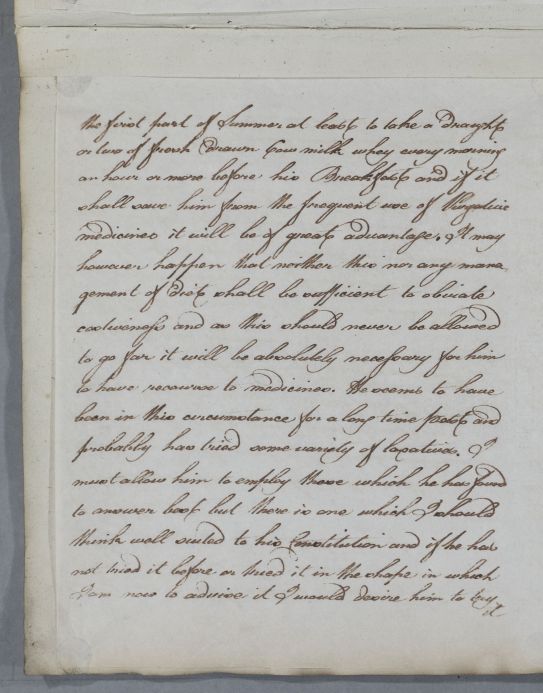 the first part of Summer at least to take a draught
or two of fresh drawn Cow milk whey every morning
an hour or more before his Breakfast and if it
shall save him from the frequent use of Purgative
medicines it will be of great advantage. It may
however happen that neither this nor any mana-
gement of diet shall be sufficient to obviate
costiveness and as this should never be allowed
to go far it will be absolutely necessary for him
to have recourse to medicines. He seems to have
been in this circumstance for a long time past and
probably has tried some variety of laxatives. I
must allow him to employ those which he has found
to answer best but there is one which I should
think well suited to his Constitution and if he has
not tried it before or tried it in the shape in which
I am now to advise it I would desire him to try
it